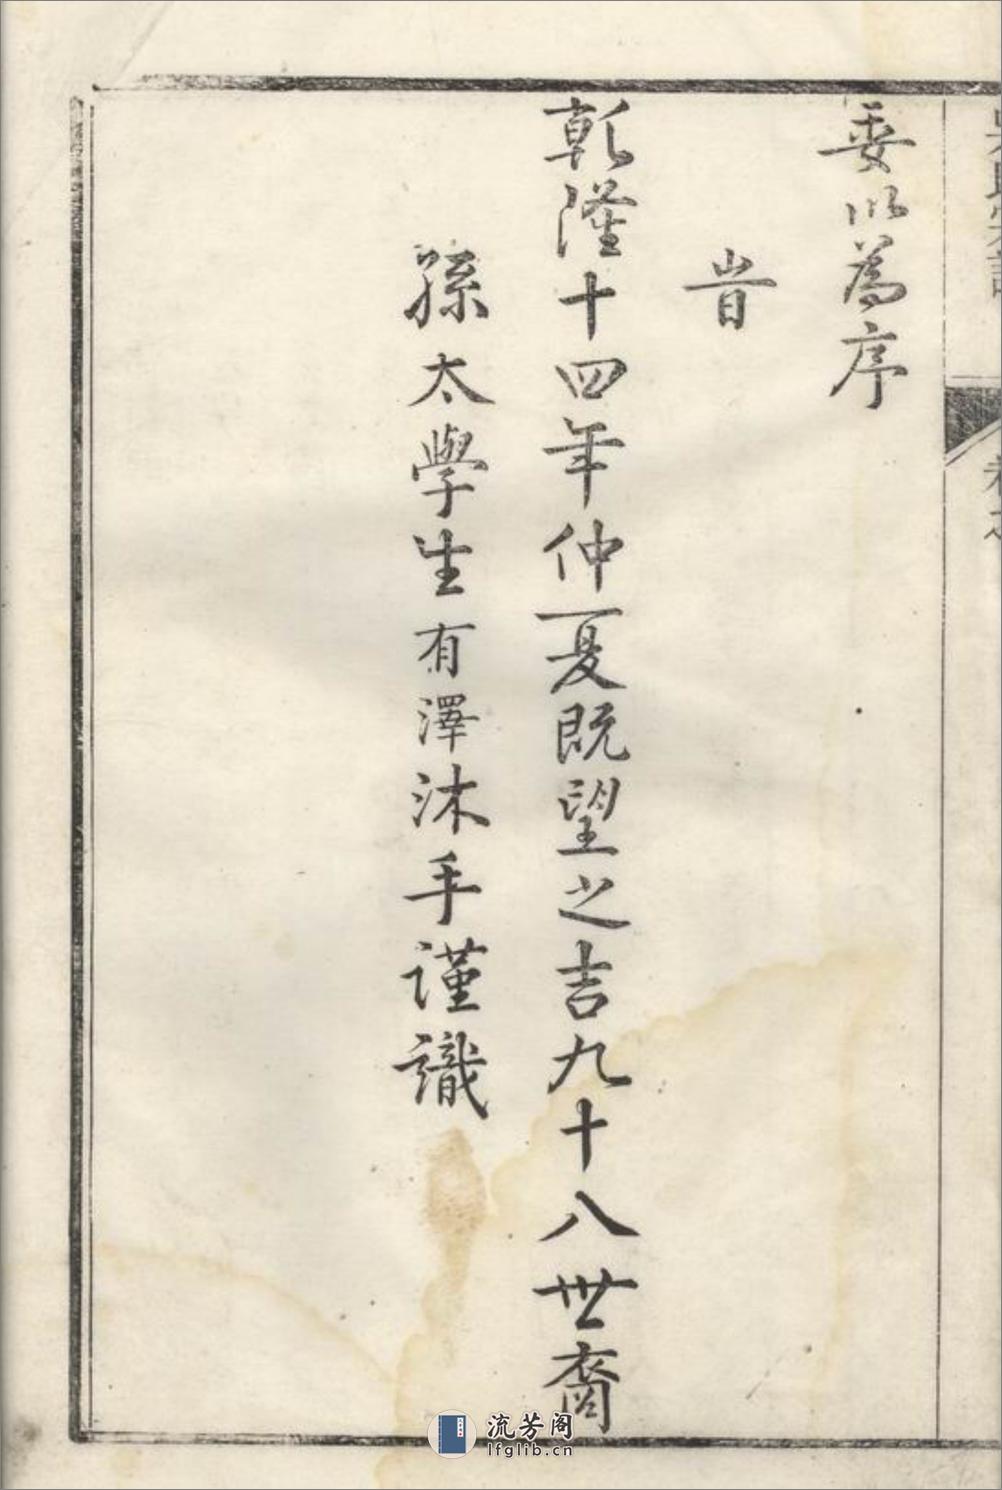 委以為序
旹
乾隆十四年仲夏既望之吉九十八世裔
孫太學生有澤沐手謹識
流芳阁
lfglib.cn